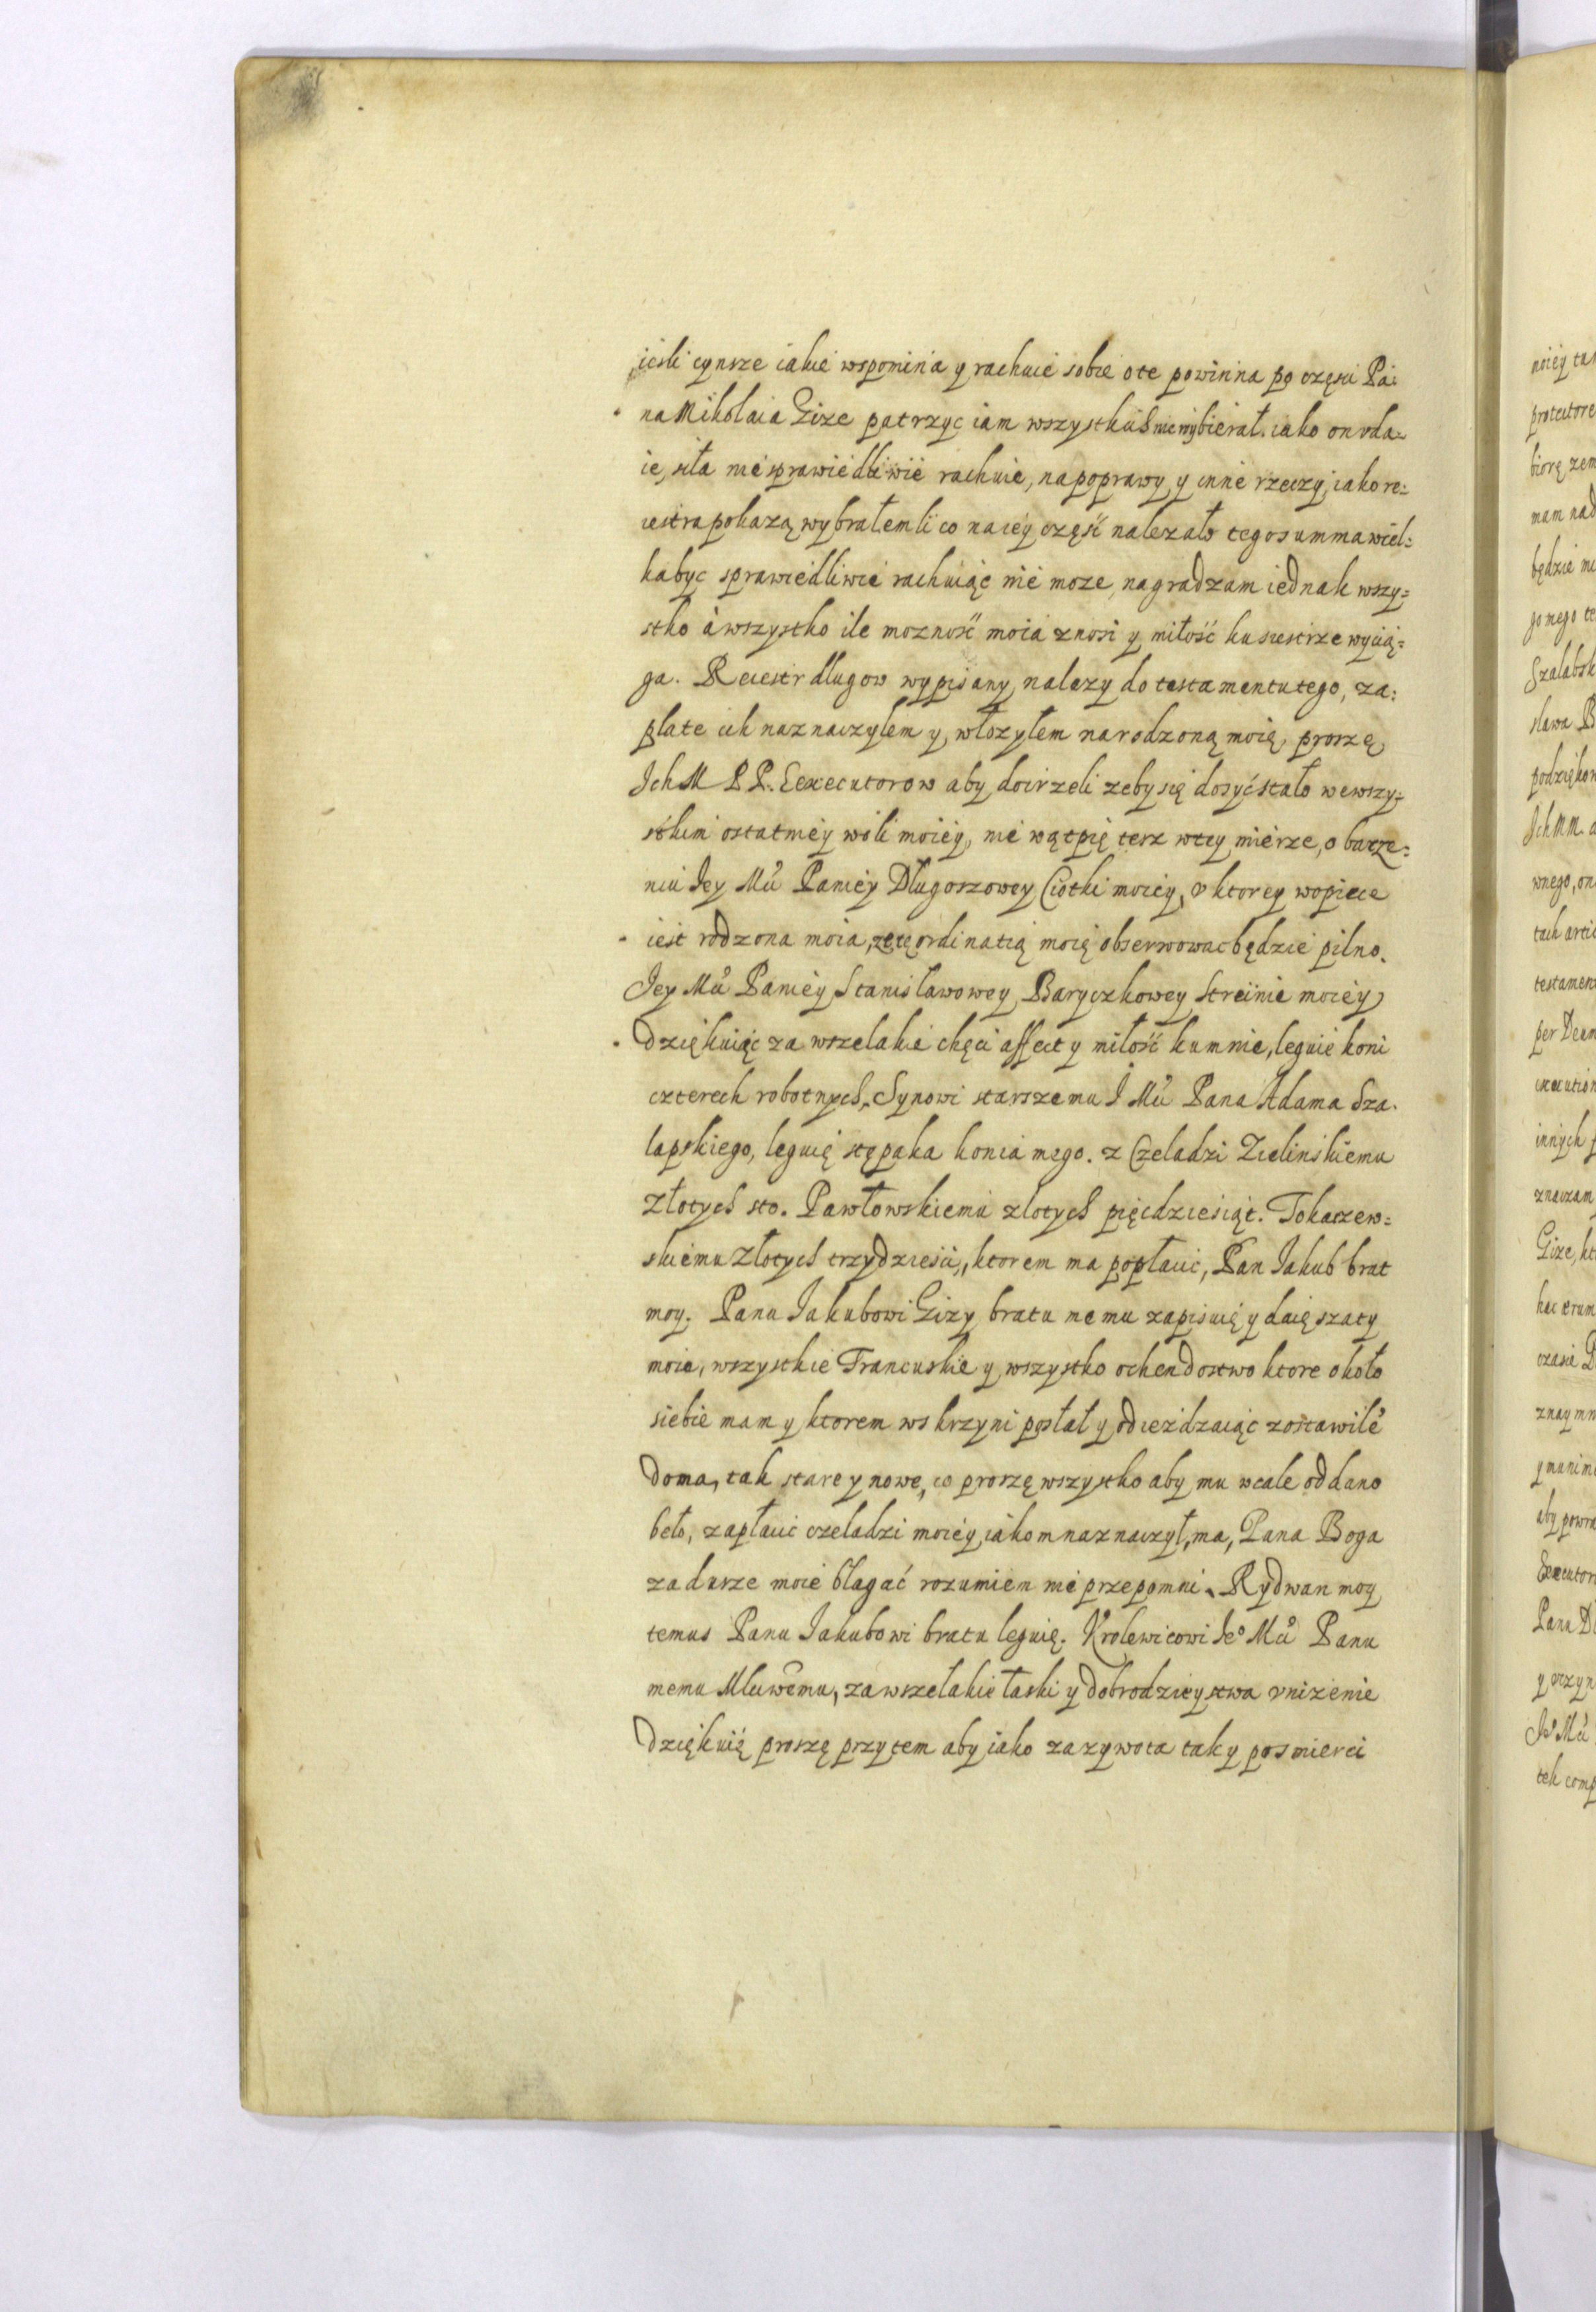 ieśli cynsze iakie wspomina y rachuie sobie o te powinna po części Pa:
na Mikołaia Gize patrzyc iam wszystkich nie wybierał. iako on vda:
ie, siła niesprawiedliwie rachuie, na poprawy y inne rzeczy, iako re:
iestra pokazą wybrałemli co na iey część nalezało tego summa wiel:
ka byc sprawiedliwie rachuiąc nie moze, nagradzam iednak wszy:
stko à wszystko ile mozność moia znosi y miłość ku siestrze wycią:
ga. Reiestr dlugow wypisany, nalezy do testamentu tego, za:
płate ich naznaczyłem y, włozyłem na rodzoną moię, proszę,
Ich M P P. Exexecutorow aby doirzeli zeby się dosyć stało we wszy:
stkim ostatniey woli moiey, nie wątpię tesz w tey mierze, o bacze:
niu Iey Mci Paniey Długoszowey Ciotki moiey, v ktorey w opiece
iest rodzona moia, ze tę ordinatią moię obserwowac będzie pilno.
Iey Mci Paniey Stanisławowey Baryczkowey Streinie moiey
dziękuiąc za wszelakie chęci affect y miłość ku mnie, leguie koni
czterech robotnych. Synowi starszemu I Mci Pana Adama Sza.
lapskiego, leguię stępaka konia mego. z Czeladzi Zielinskiemu
złotych sto. Pawłowskiemu złotych pięcdziesiąt. Tokaczew:
skiemu złotych trzydziesci, ktorem ma popłacic, Pan Iakub brat
moy. Panu Iakubowi Gizy bratu memu zapisuię y daię szaty
moie, wszystkie Francuskie y wszystko ochendostwo ktore około
siebie mam y ktorem w skrzyni posłał y odieżdzaiąc zostawilē
doma, tak stare y nowe, co proszę wszystko aby mu wcale oddano
beło, zapłacic czeladzi moiey, iakom naznaczył, ma, Pana Boga
za dusze moie błagać rozumiem nie przepomni. Rydwan moy
temus Panu Iakubowi bratu leguię. Krolewicowi Ieo Mci Panu
memu Mciwemu, za wszelakie łaski y dobrodzieystwa vnizenie
dziękuię proszę przytem aby iako za zywota tak y po smierci